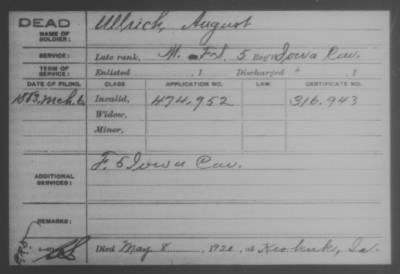 DEAD
NAME OF SOLDIER:
Ullrich, August
SERVICE:
Late rank, M. F&S. 5 Reg't Iowa Cav.
TERM OF SERVICE:
Enlisted , 1 Discharged " , 1
DATE OF FILING. CLASS APPLICATION NO. LAW. CERTIFICATE NO.
1883, Mch. 6 Invalid, 474,952 316,943
Widow,
Minor,
ADDITIONAL SERVICES:
F. 5 Iowa Cav.
REMARKS:
Died May 8, 1920, at Keokuk, Ia.